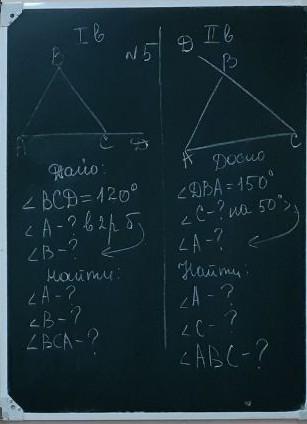 I в
№5
B
A
C
D
Дано:
∠BCD=120°
∠A-? в 2 р б
∠B-?
Найти:
∠A-?
∠B-?
∠BCA-?
II в
D
B
A
C
Дано
∠DBA=150°
∠C-? на 50°>
∠A-?
Найти:
∠A-?
∠C-?
∠ABC-?